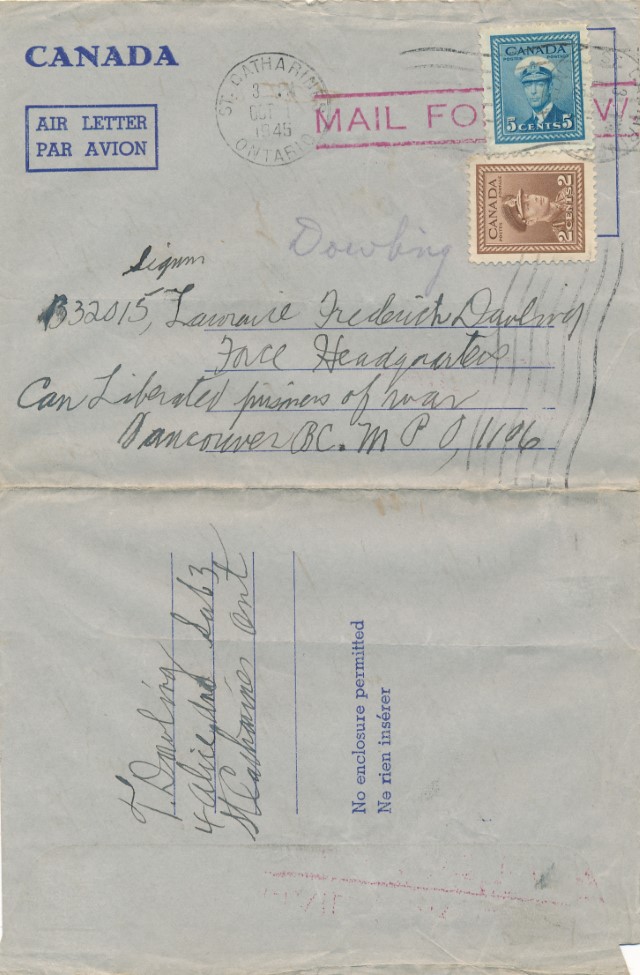 CANADA
AIR LETTER
PAR AVION
ST. CATHARINE
3 PM
OCT
1945
ONTARIO
MAIL FO
CANADA
POSTES POSTAGE
5 CENTS 5
CANADA
2 CENTS 2
Dowling
Signm
B32015, Lawraive Frederich Dowling
Force Headquarters
Can Liberated prisners of war
Vancouver BC. M P O, 1106
T. Dowling
4 St
St Catharines Ont
No enclosure permitted
Ne rien insérer